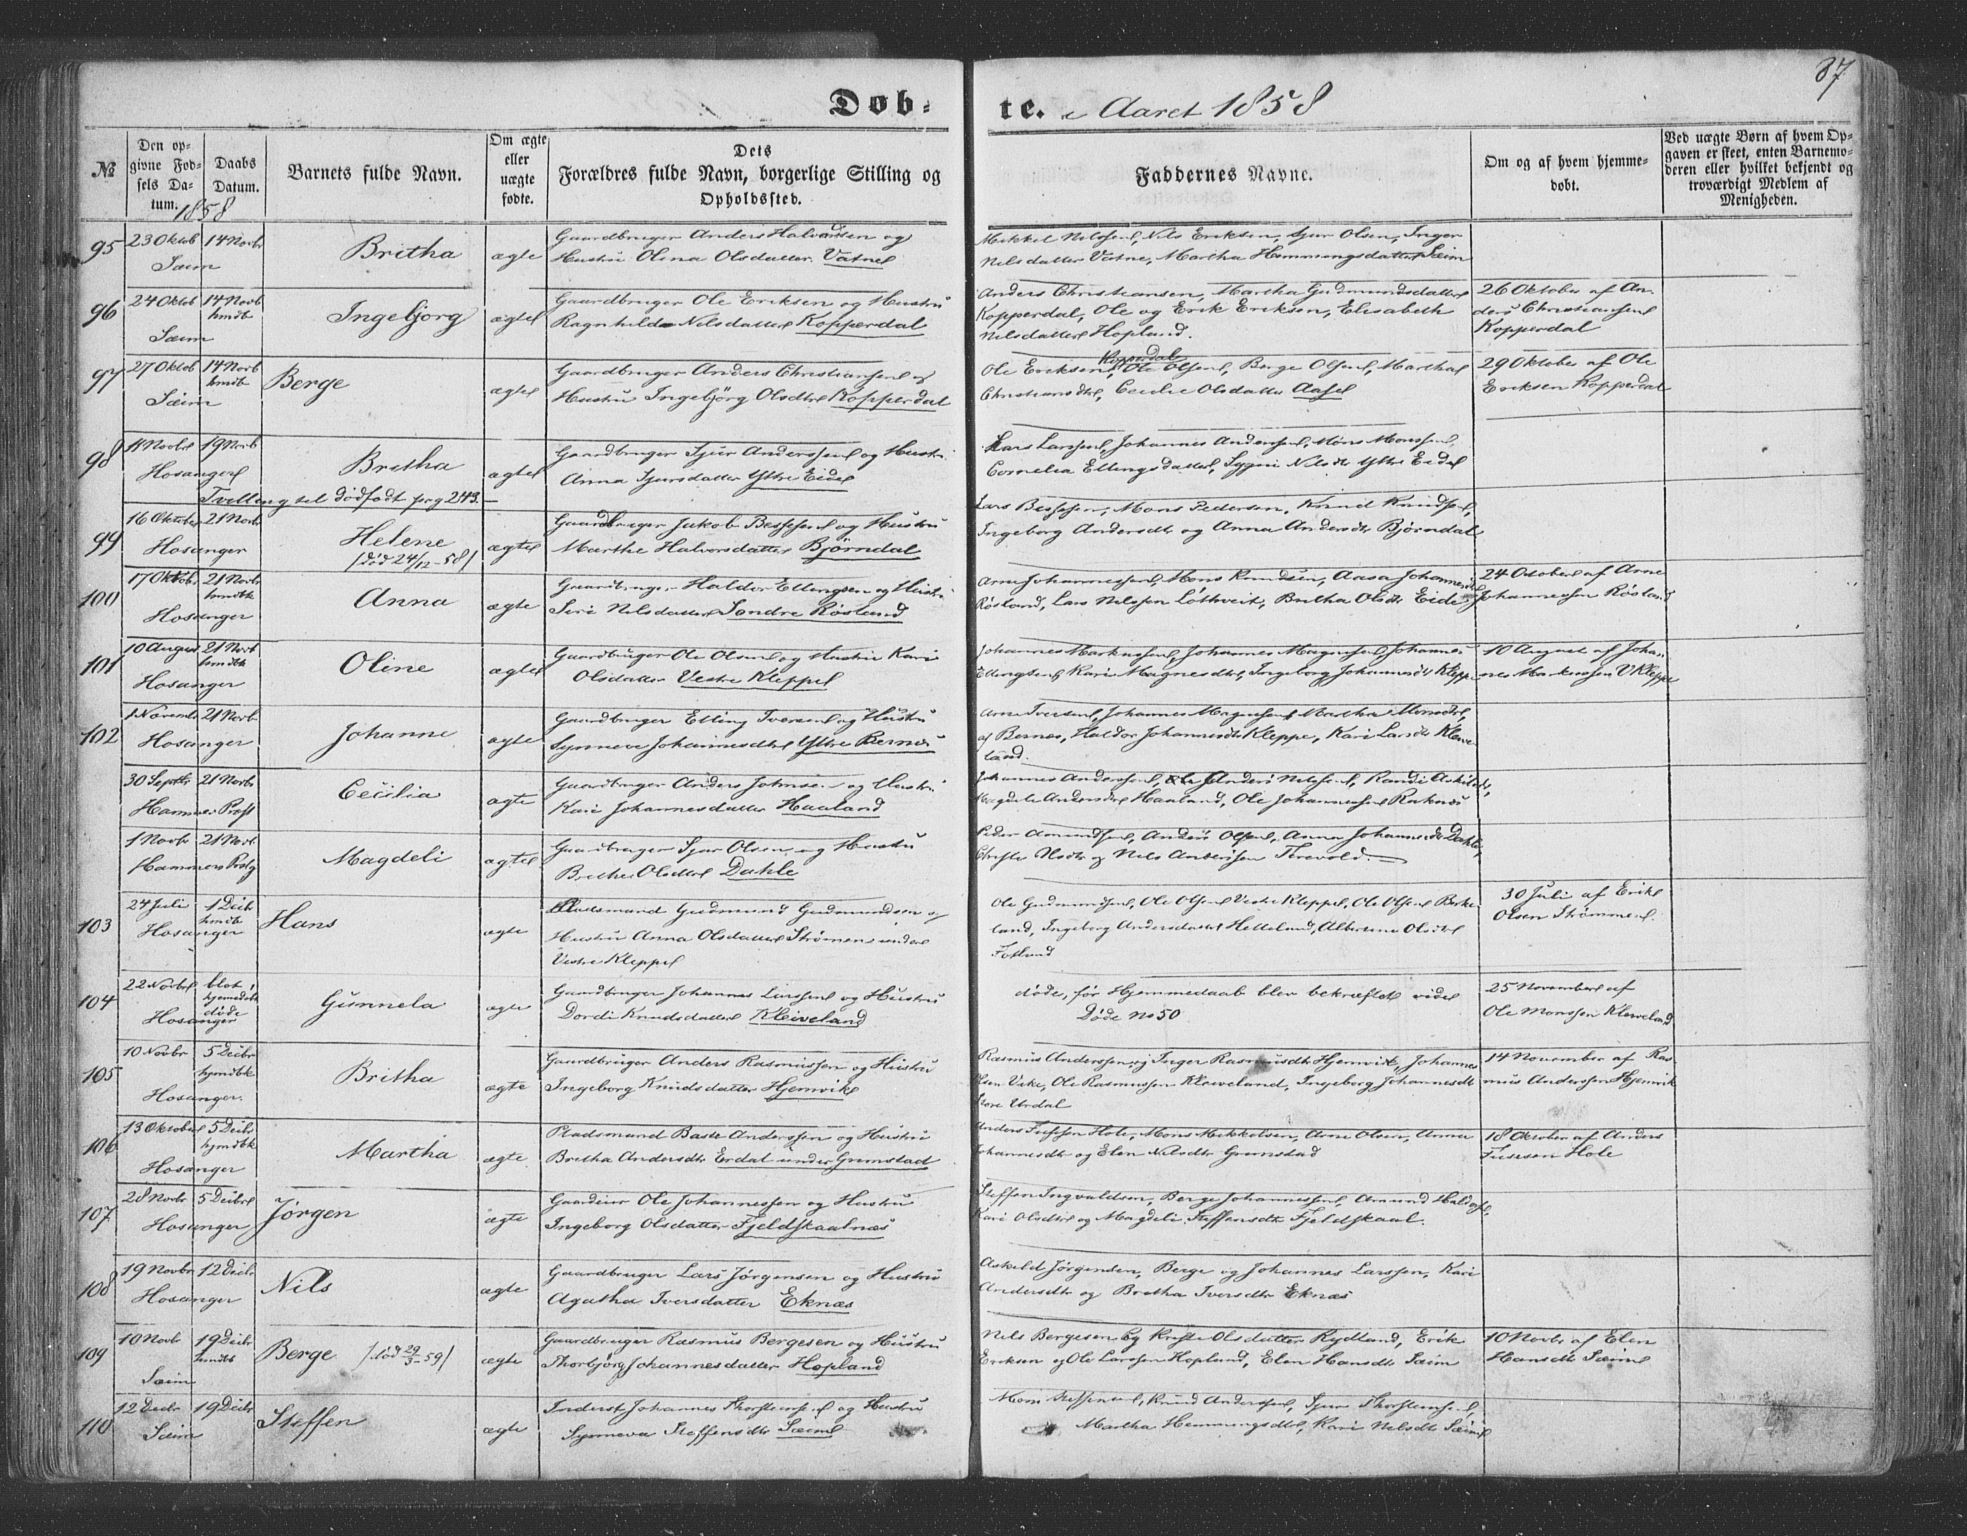 87
Døb-
te. i Aaret 1858
№
Den op-
givne Fød-
sels Da-
tum.
Daabs
Datum.
1858
Barnets fulde Navn.
Om ægte
eller
uægte
fødte.
Dets
Forældres fulde Navn, borgerlige Stilling og
Opholdssted.
Faddernes Navne.
Om og af hvem hjemme-
døbt.
Ved uægte Børn af hvem Op-
gaven er skeet, enten Barnemo-
deren eller hvilket bekjendt og
troværdigt Medlem af
Menigheden.
95 23 Oktob 14 Novbr
Sæim
Britha
ægte
Gaardbruger Anders Halvorsen og
Hustru Olina Olsdatter Vatne
Mikkel Nilssen, Nils Eriksen, Sjur Olsen, Inger
Nilsdatter Vatne, Martha Hemmingsdatter Sæim
96 24 Oktob 14 Novb
hmdb
Sæim
Ingebjørg
ægte
Gaardbruger Ole Eriksen og Hustru
Ragnhilde Nilsdatter Kopperdal
Anders Christiansen, Martha Gudmundsdatter
Kopperdal, Ole og Erik Eriksen, Elisabeth
Nilsdatter Hopland.
26 Oktober af An-
ders Christiansen
Kopperdal
97 27 Oktob 14 Novb
hmdb
Sæim
Berge
ægte
Gaardbruger Anders Christiansen og
Hustru Ingebjörg Olsdtr Kopperdal
Kopperdal
Ole Eriksen, Ole Olsen, Berge Olsen, Martha
Christiansdtr, Cecilie Olsdatter Aase
29 Oktober af Ole
Eriksen Kopperdal
98 11 Novbr 19 Novb
Hosanger
Britha
ægte
Gaardbruger Sjur Anderssen og Hustru
Anna Sjursdatter Yttre Eide
Lars Larssen, Johannes Anderssen, Mons Monssen,
Cornelia Ellingsdatter, Sygni Nilsdtr Yttre Eide
Tvilling til dødfødt pag 243.
99 16 Oktober 21 Novb
Hosanger
Helene
/død 24/12-58/
ægte
Gaardbruger Jakob Bessesen og Hustru
Marthe Halvorsdatter Bjørndal
Lars Bessesen, Mons Pedersen, Knud Knudsen,
Ingeborg Andersdtr og Anna Andersdtr Bjørndal
100 17 Oktob 21 Novb
hmdbk
Hosanger
Anna
ægte
Gaardbruger Haldor Ellingsen og Hustru
Siri Nilsdatter Søndre Røsland
Arne Johannessen, Mons Knudsen, Aasa Johannesdtr
Røsland, Lars Nilssen Løthveit, Britha Olsdtr Eide
24 Octobers af Arne
Johannessen Røsland
101 10 August 21 Novb
hmdbk
Hosanger
Oline
ægte
Gaardbruger Ole Olsen og Hustru Kari
Olsdatter Vestre Kleppe
Johannes Markussen, Johannes Magnesen, Johannes
Ellingsen, Kari Magnesdtr, Ingeborg Johannesdtr Kleppe
10 August af Joha-
nes Markussen V Kleppe
102 1 Novemb 21 Novb
Hosanger
Johanne
ægte
Gaardbruger Elling Iversen og Hustru
Synneve Johannesdtr Yttre Bernes
Arne Iversen, Johannes Magnesen, Martha Monsdtr,
af Bernes, Haldor Johannesdtr Kleppe, Kari Larsdtr Kleve-
land.
30 Septbr 21 Novbr
Hammer Præst
Cecilia
ægte
Gaardbruger Anders Johnsen og Hustru
Kari Johannesdatter Haaland
Johannes Anderssen, Ole Anders Nilssen, Randi Askildsdtr,
Magdele Andersdtr Haaland, Ole Johannessen Raknes
1 Novbr 21 Novb
Hammer Præstg
Magdeli
ægte
Gaardbruger Sjur Olsen og Hustru
Brithe Olsdtr Dahle
Peder Amundsen, Anders Olsen, Anna Johannesdtr Dahle,
Christi Olsdtr og Nils Anderssen Terevold.
103 24 Juli 1 Decb
hmdb
Hosanger
Hans
ægte
Pladsmand Gudmund Gudmundsen og
Hustru Anna Olsdatter Strømen under
Vestre Kleppe
Ole Gudmundsen, Ole Olsen Vestre Kleppe, Ole Olsen Birke-
land, Ingeborg Andersdatter Helleland, Albertine Olsdtr
Fotland
30 Juli af Erik
Olsen Strømmen
104 22 Novbr blot
hjemedøbt
døde
Hosanger
Gunnela
ægte
Gaardbruger Johannes Larssen og Hustru
Dordi Knudsdatter Kleiveland
døde, før Hjemmedaab blev bekræftet vide
Døde No 50
25 November af
Ole Monssen Kleveland
105 10 Novbr 5 Decbr
hjmdbk
Hosanger.
Britha
ægte
Gaardbruger Anders Rasmussen og Hustru
Ingeborg Knudsdatter Hjemvik
Rasmus Anderssen og Inger Rasmusdtr Hjemvik, Johannes
Olsen Vike, Ole Rasmussen Kleveland, Ingeborg Johannesdtr
Store Urdal
14 November af Ras-
mus Anderssen Hjemvik
106 13 Oktober 5 Decbr
hjmdbk
Hosanger
Martha
ægte
Pladsmand Baste Anderssen og Hustru
Britha Andersdtr Erdal under Grimstad
Anders Hole, Mons Mikkelsen, Arne Olsen, Anna
Johannesdtr og Elen Nilsdtr Grimstad
18 Oktober af Anders
Hole
107 28 Novbr 5 Decbr
Hosanger
Jørgen
ægte
Gaardeier Ole Johannessen og Hustru
Ingeborg Olsdatter Fjeldskaalnæs
Steffen Ingvaldsen, Berge Johannessen, Amund Haldors,
Kari Olsdtr og Magdeli Steffensdtr Fjeldskaal.
108 19 Novbr 12 Decbr
Hosanger
Nils
ægte
Gaardbruger Lars Jørgensen og Hustru
Agatha Iversdatter Eknæs
Askild Jørgensen, Berge og Johannes Larssen, Kari
Andersdtr og Britha Iversdtr Eknæs
109 10 Novbr 19 Decbr
hmdb
Sæim
Berge /død 29/3-59/
ægte
Gaardbruger Rasmus Bergesen og Hustru
Thorbjörg Johannesdatter Hopland
Nils Bergesen og Kristi Olsdatter Rydland, Erik
Eriksen og Ole Larssen Hopland, Elen Hansdtr Sæim
10 Novbr af Elen
Hansdtr Sæim
110 12 Decbr 19 Decbr
Sæim
Steffen
ægte
Inderst Johannes Thorsteinsen og Hustru
Synneva Steffensdtr Sæim
Mons Steffensen, Knud Anderssen, Sjur Thorsteinsen,
Martha Hemmingsdtr, Kari Nilsdtr Sæim